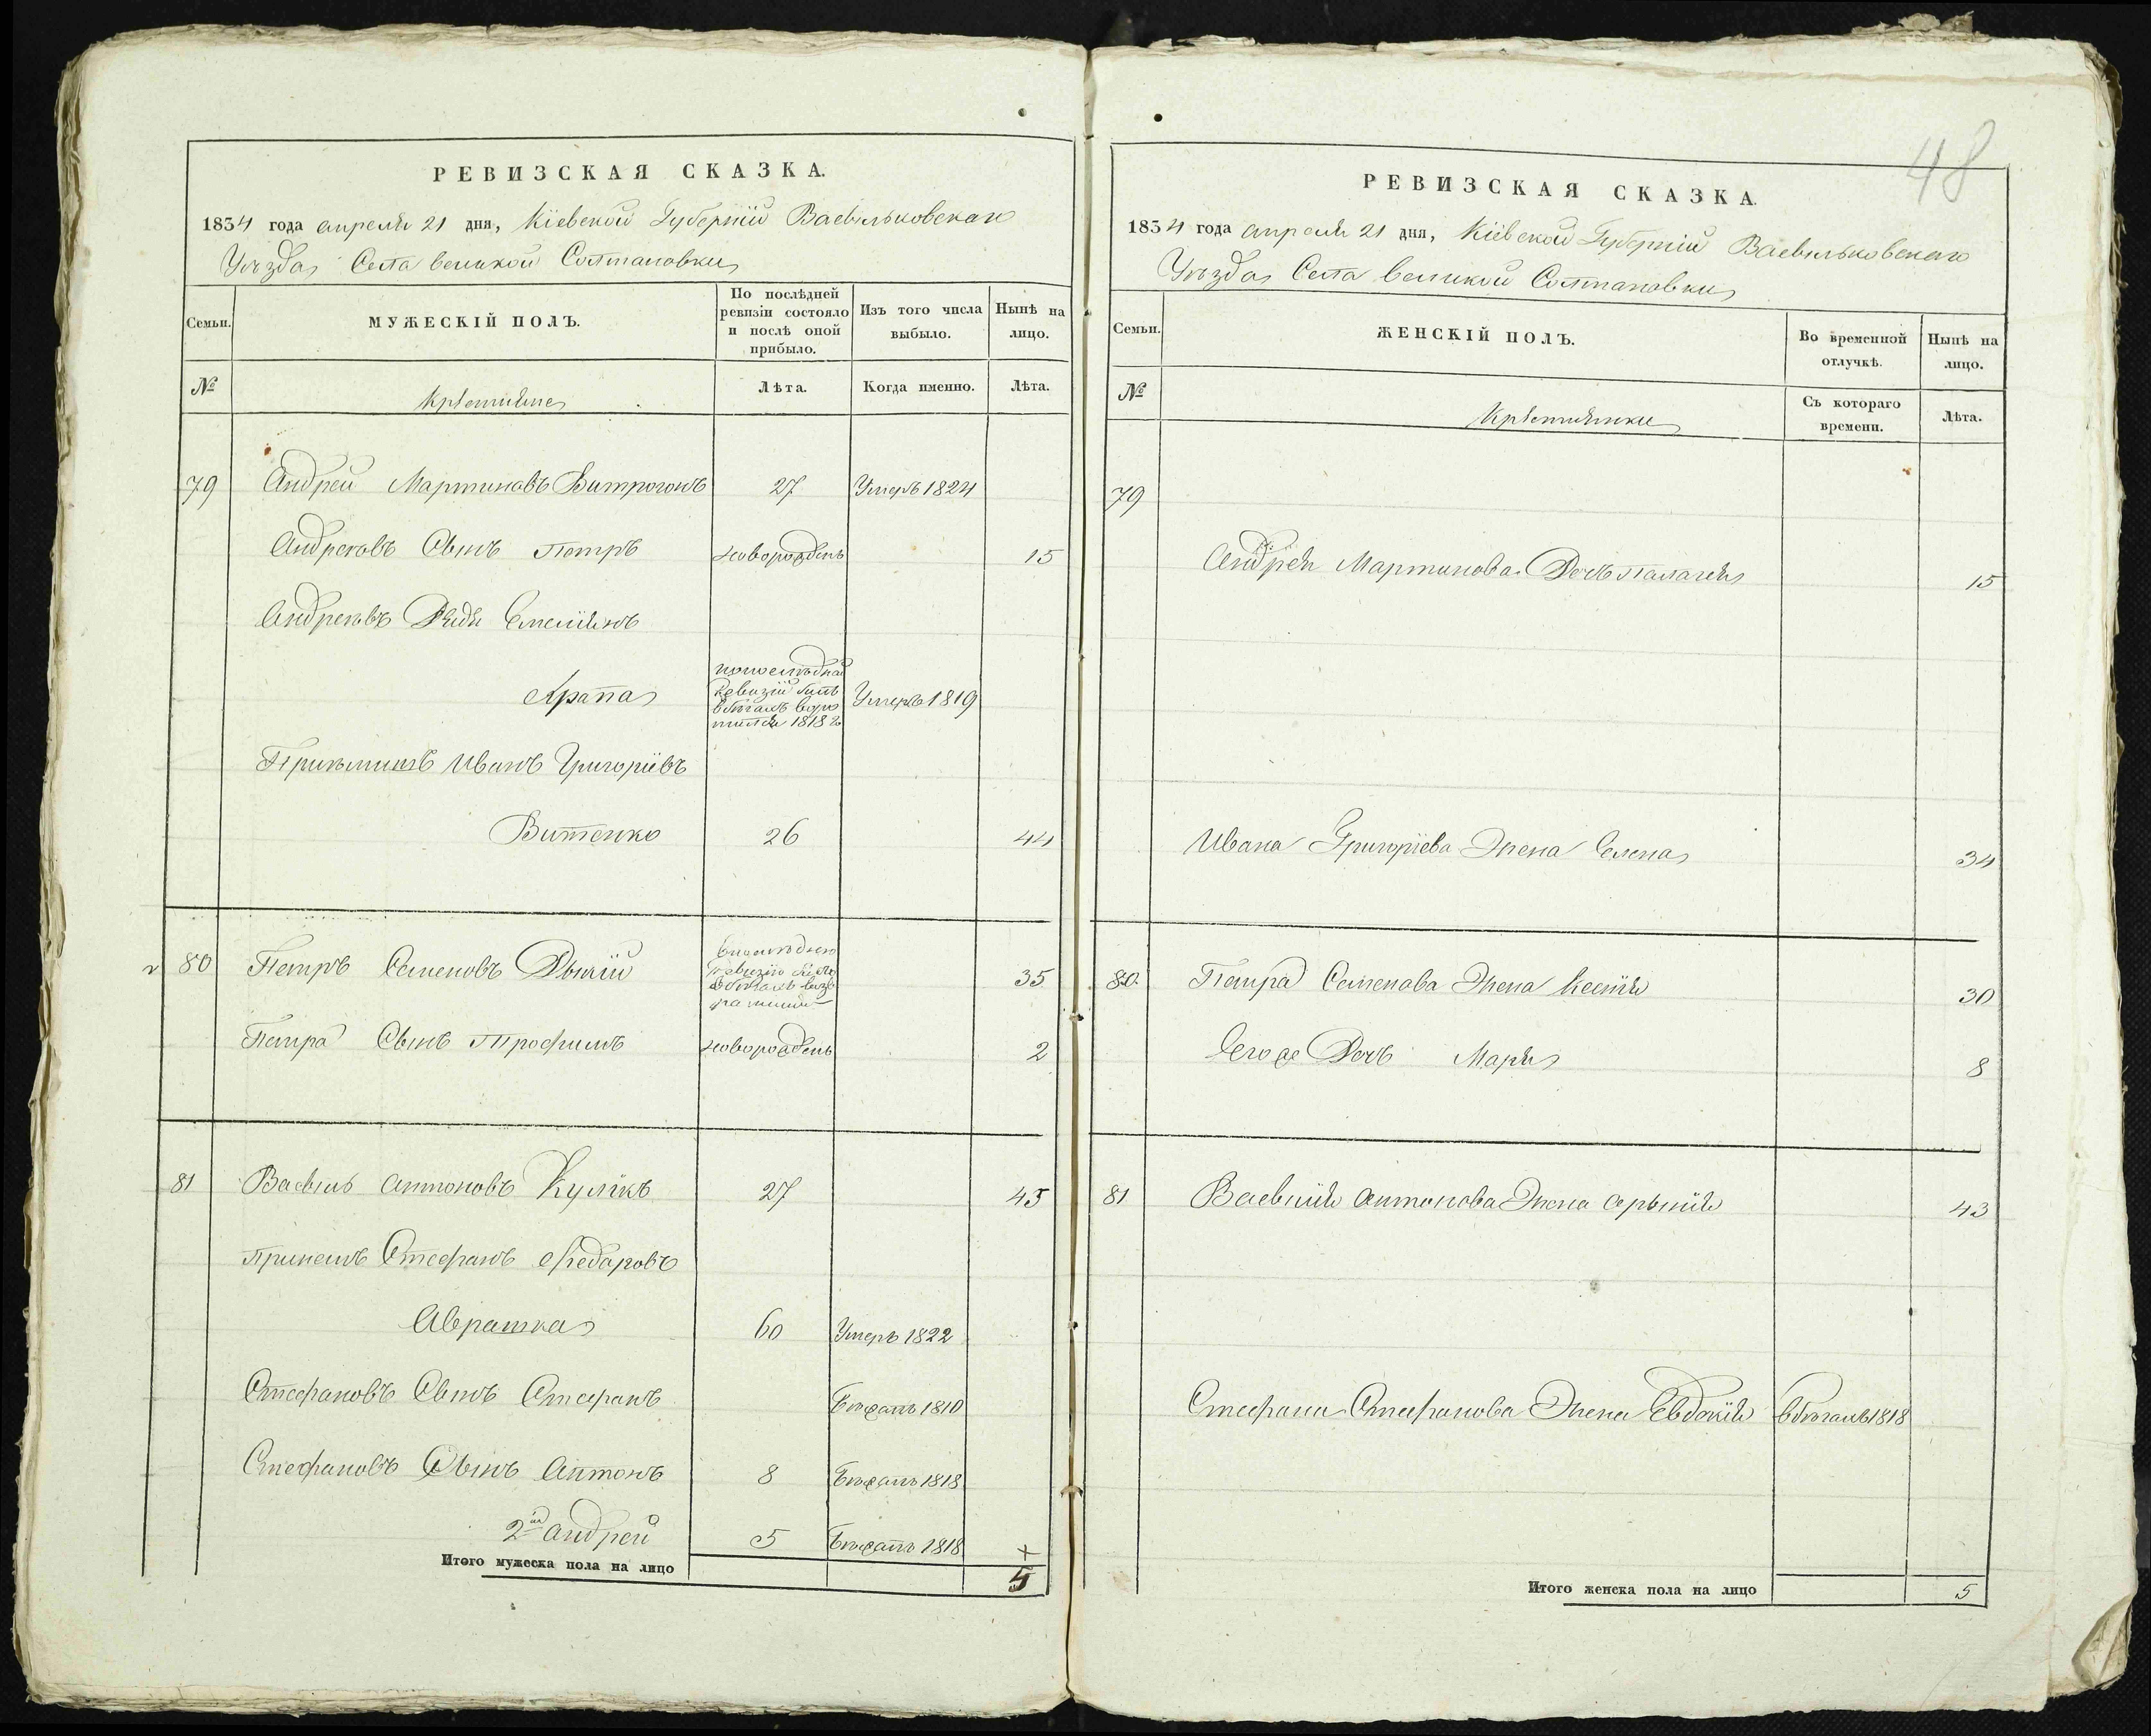 РЕВИЗСКАЯ СКАЗКА.
1834 года апреля 21 дня, Кіевской Губерніи Васильковскаго
Уѣзда Села великой Солтановки
Семьи.
МУЖЕСКІЙ ПОЛЪ.
По послѣдней ревизіи состояло и послѣ оной прибыло.
Изъ того числа выбыло.
Нынѣ на лицо.
№
Лѣта.
Когда именно.
Лѣта.
79 Андрей Мартиновъ 27 Умеръ 1824
Андреевъ Сынъ Петръ новорожденъ 15
Андреевъ Дядя
Умеръ 1819
1818
Иванъ Григоріевъ
Витенко 26 44
80 Петръ Семеновъ 35
Петра Сынъ Трофимъ новорожденъ 2
81 Василь Антоновъ Кулікъ 27 45
Стефанъ Федаровъ
Аврамка 60 Умеръ 1822
Стефановъ Сынъ Стефанъ Бѣжалъ 1810
Стефановъ Сынъ Антонъ 8 Бѣжалъ 1818
2й Андрей 5 Бѣжалъ 1818
Итого мужеска пола на лицо 5
48
РЕВИЗСКАЯ СКАЗКА.
1834 года апреля 21 дня, Кіевской Губерніи Васильковскаго
Уѣзда Села великой Солтановки
Семьи.
ЖЕНСКІЙ ПОЛЪ.
Во временной отлучкѣ.
Нынѣ на лицо.
№
Съ котораго времени.
Лѣта.
79
Андрея Мартинова Дочь Палагея 15
Ивана Григоріева Жена Елена 34
80 Петра Семенова Жена Ксенія 30
Дочь Марія 8
81 Василія Антонова Жена 43
Стефана Стефанова Жена Евдокія 1818
Итого женска пола на лицо 5